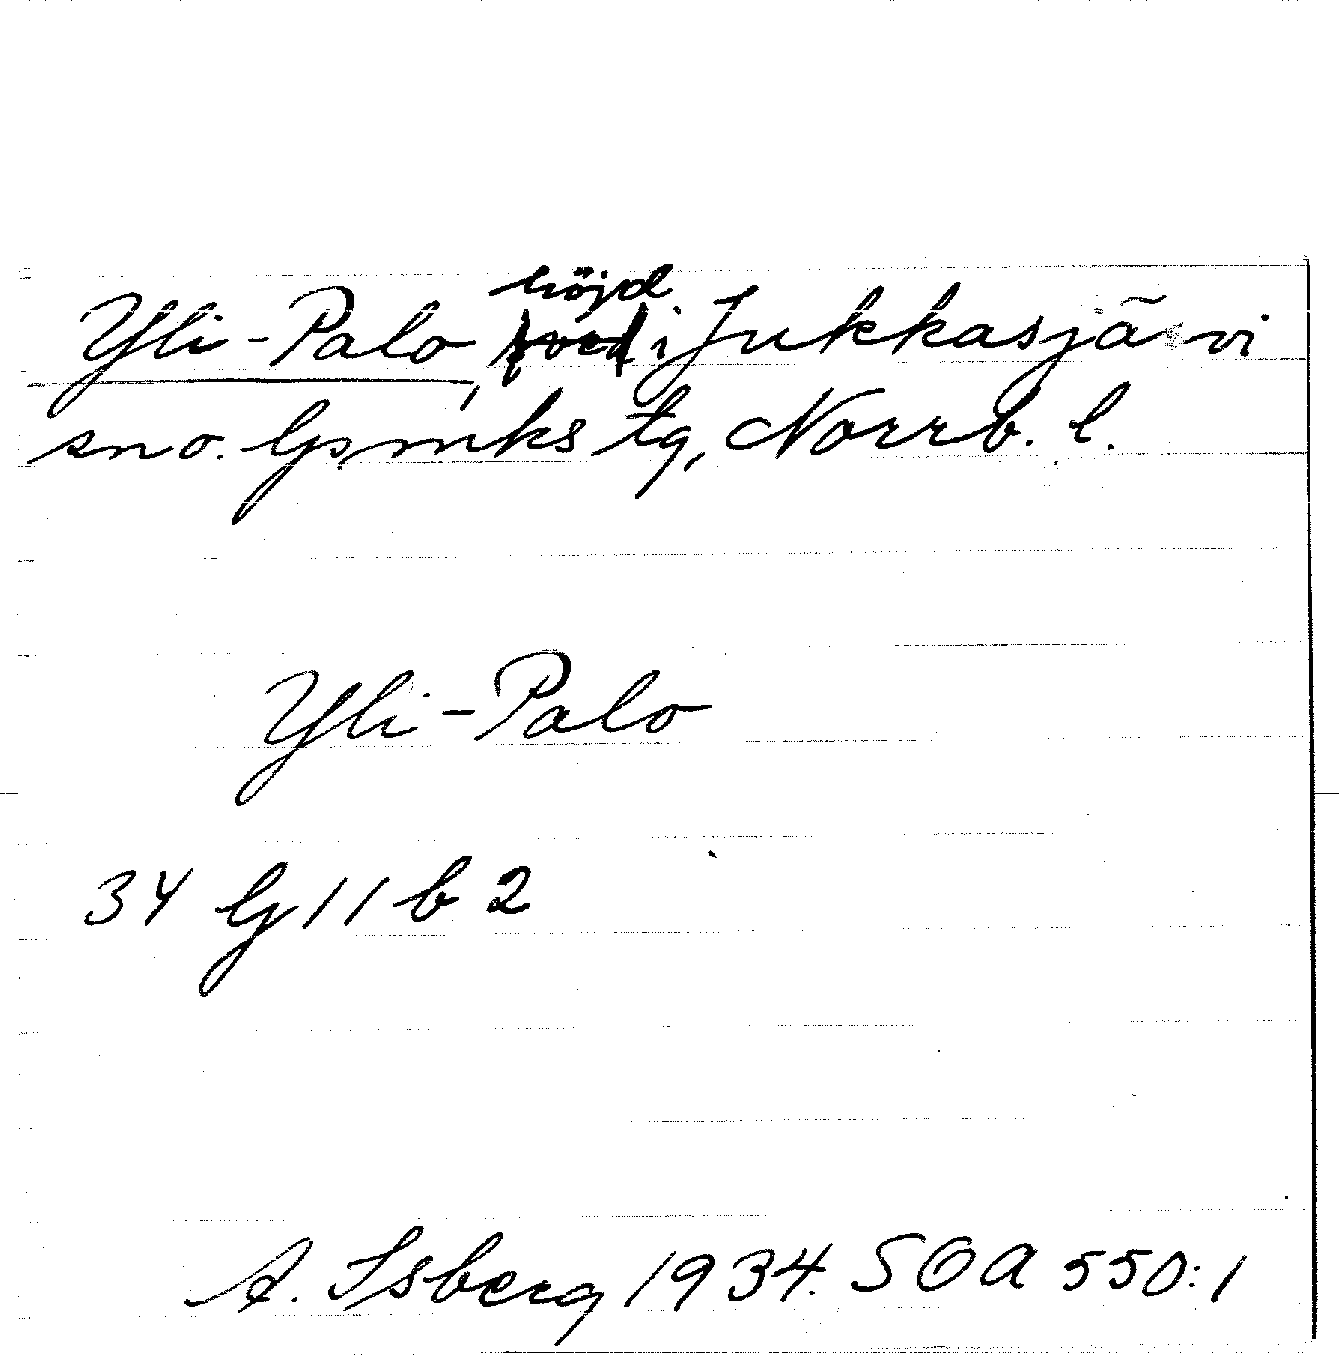 Yli-Palo, höjd i Jukkasjärvi
sno. Gs mks tg, Norrb. l.
Yli-Palo
34 G 11 b 2
A. Isberg 1934. SOA 550:1